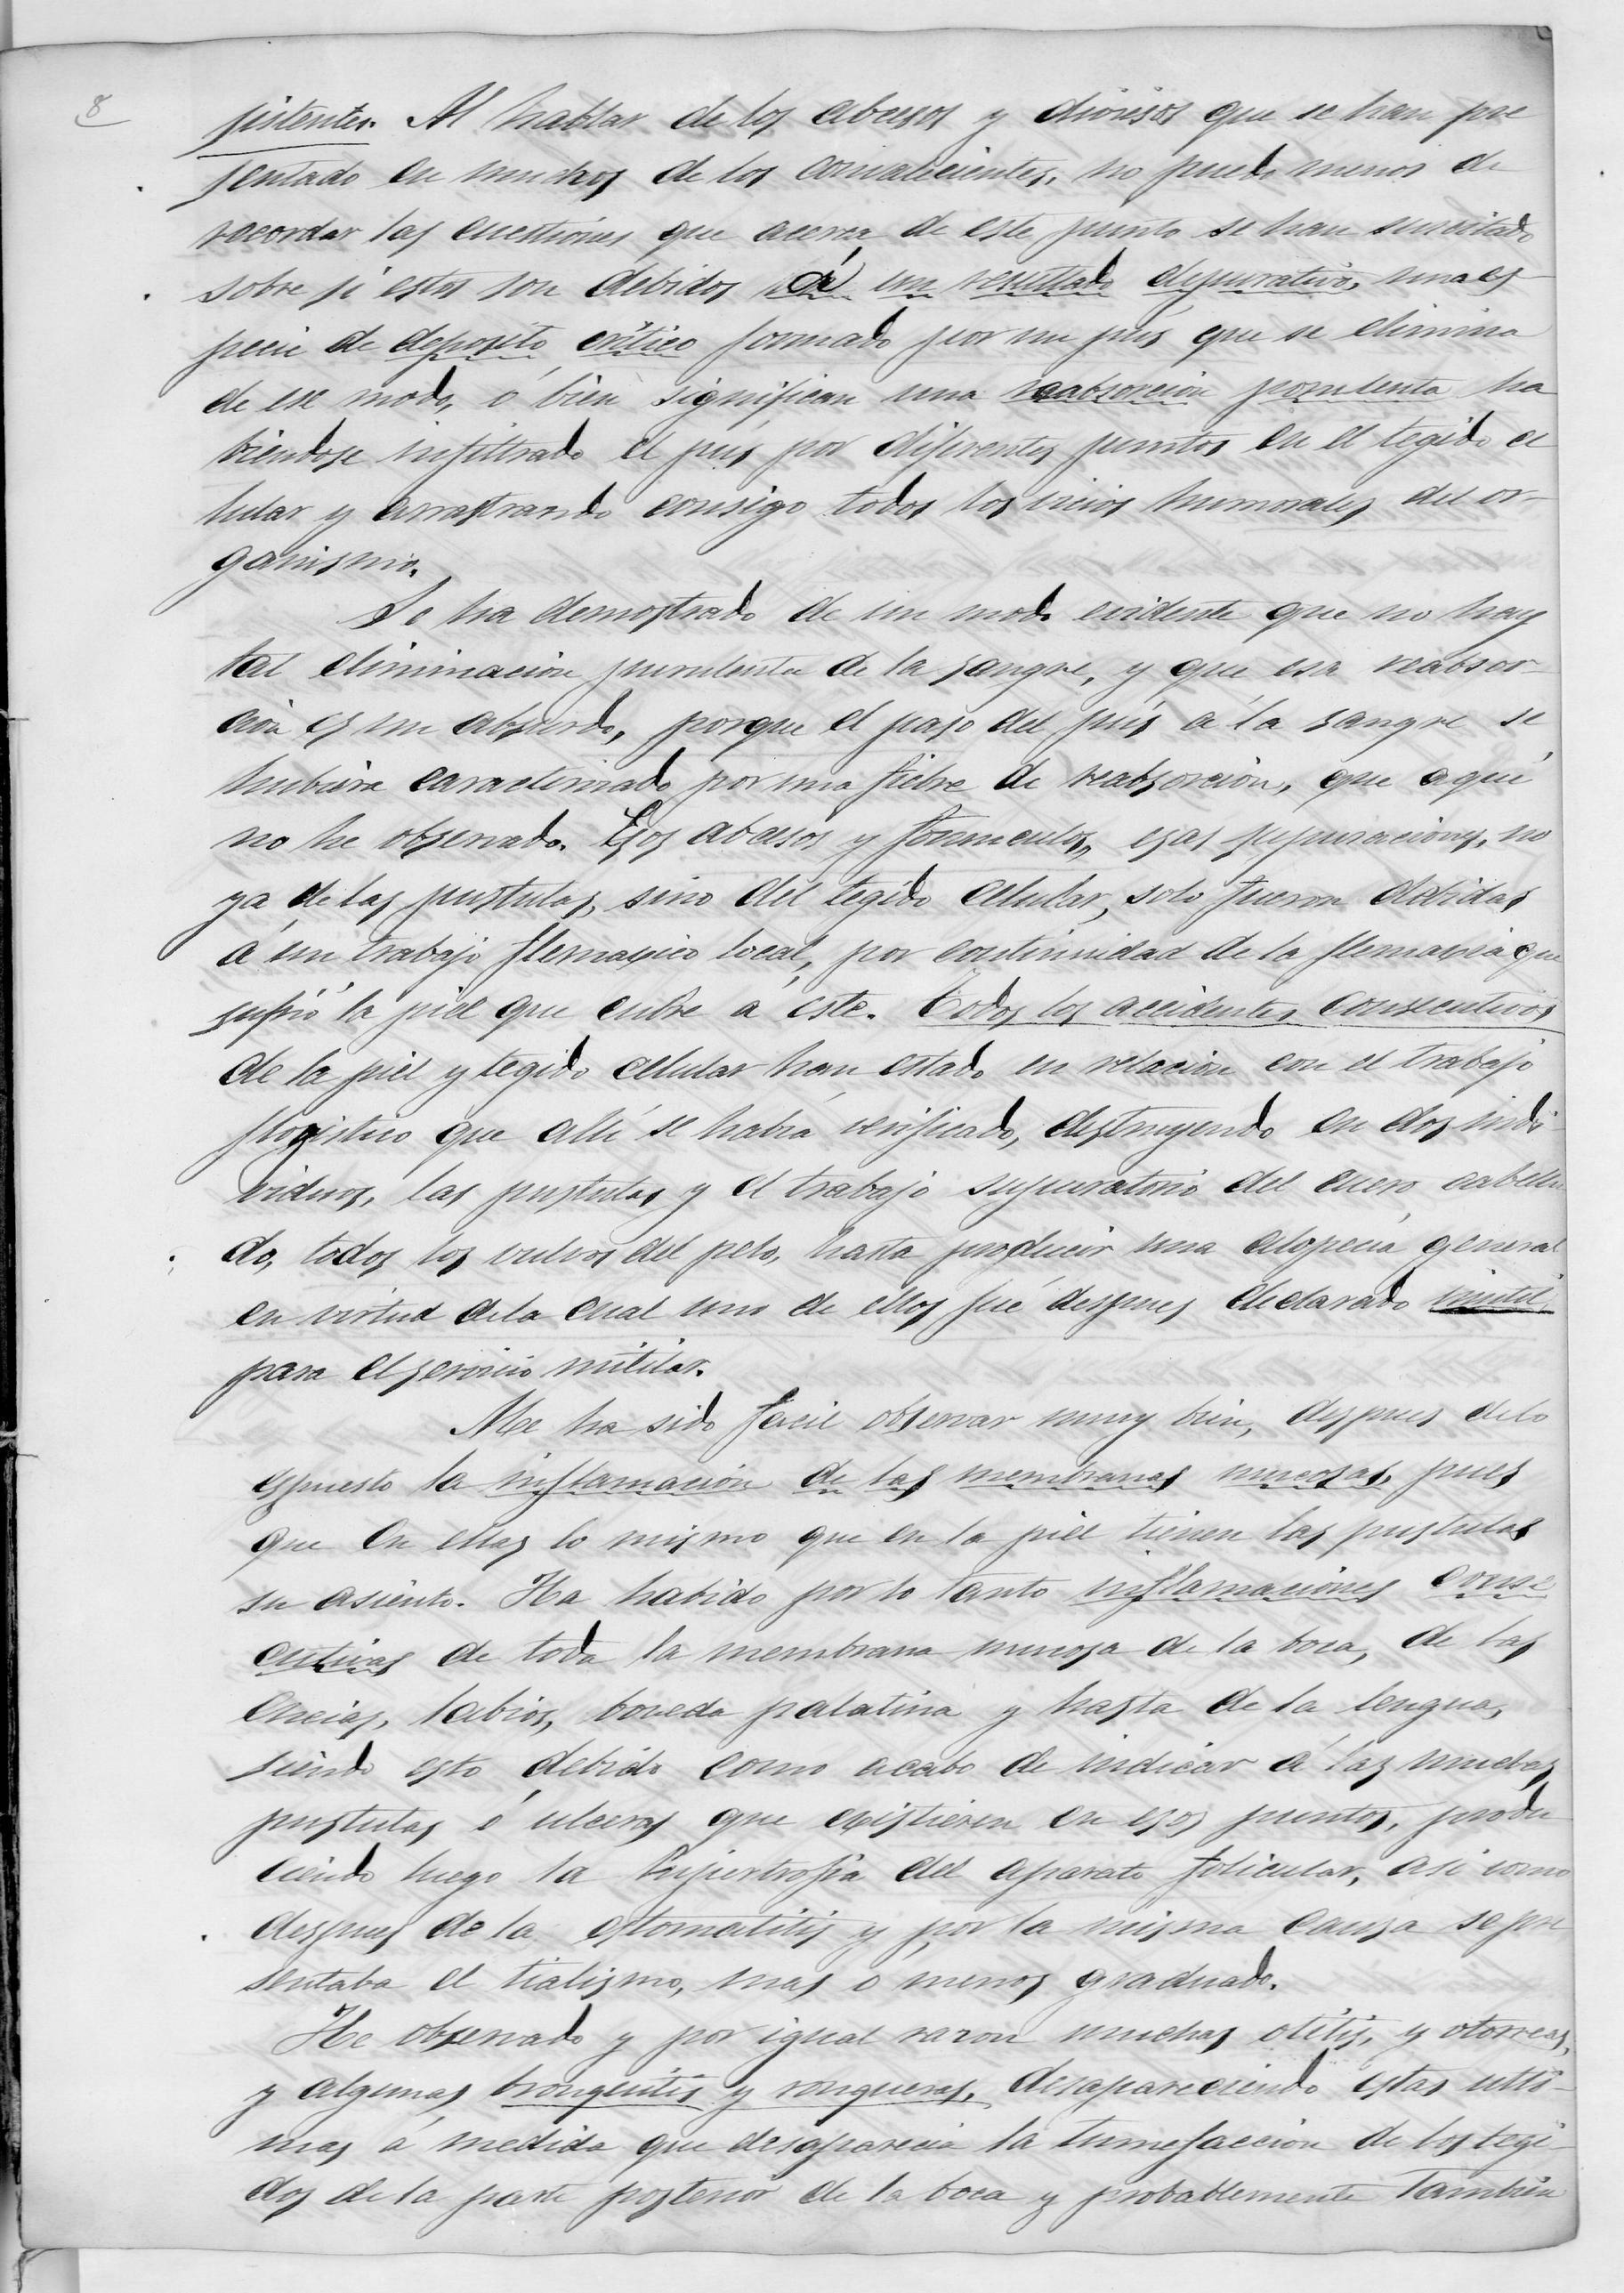 8
sistentes. Al hablar de los abcesos y diviesos que se han pre
sentado en muchos de los convalecientes, no puedo menos de
recordar las cuestiones que acerca de este punto se han suscitado
sobre si estos son debidos á un resultado depurativo, una es-
pecie de deposito critico formado por un pus que se elimina
de ese modo, ó bien significan una reabsorcion porulenta ha
biendose infiltrado el pus por diferentes puntos en el tegido ce
lular y arrastrando consigo todos los vicios humorales del or-
ganismo.
Se ha demostrado de un modo evidente que no hay
tal eliminacion purulenta de la sangre, y que esa reabsor-
cion es un absurdo, porque el paso del pus á la sangre se
hubiera caracterizado por una fiebre de reabsorcion, que aqui
no he observado. Esos abcesos y forunculos, esas supuraciones, no
ya de las pustulas, sino del tegido celular, solo fueron debidas
á un trabajo flemasico local, por continuidad de la flemasia que
sufrió la piel que cubre á este. Todos los accidentes consecutivos
de la piel y tegido celular han estado en relacion con el trabajo
flogistico que alli se habia verificado, destruyendo en dos indi
viduos, las pustulas y el trabajo supuratorio del cuero cabellu
do, todos los bulbos del pelo, hasta producir una alopecia general
en virtud dela cual uno de ellos fué despues declarado inutil
para el servicio militar.
Me ha sido facil observar muy bien, despues delo
espuesto la inflamacion de las membranas mucosas, pues
que en ellas lo mismo que en la piel tienen las pustulas
su asiento. Ha habido por lo tanto inflamaciones conse
cutivas de toda la membrana mucosa de la boca, de las
encias, labios, boveda palatina y hasta de la lengua,
siendo esto debido como acabo de indicar á las muchas
pustulas ó ulceras que existieren en esos puntos, produ
ciendo luego la hipertrofia del aparato folicular, asi como
despues de la estomatitis y por la misma causa se pre
sentaba el tialismo, mas ó menos graduado.
He observado y por igual razon muchas otitis, y otorreas,
y algunas bronquitis y ronqueras, desapareciendo estas ulti-
mas á medida que desaparecia la tumefaccion de los tegi-
dos de la parte posterior de la boca y probablemente tambien